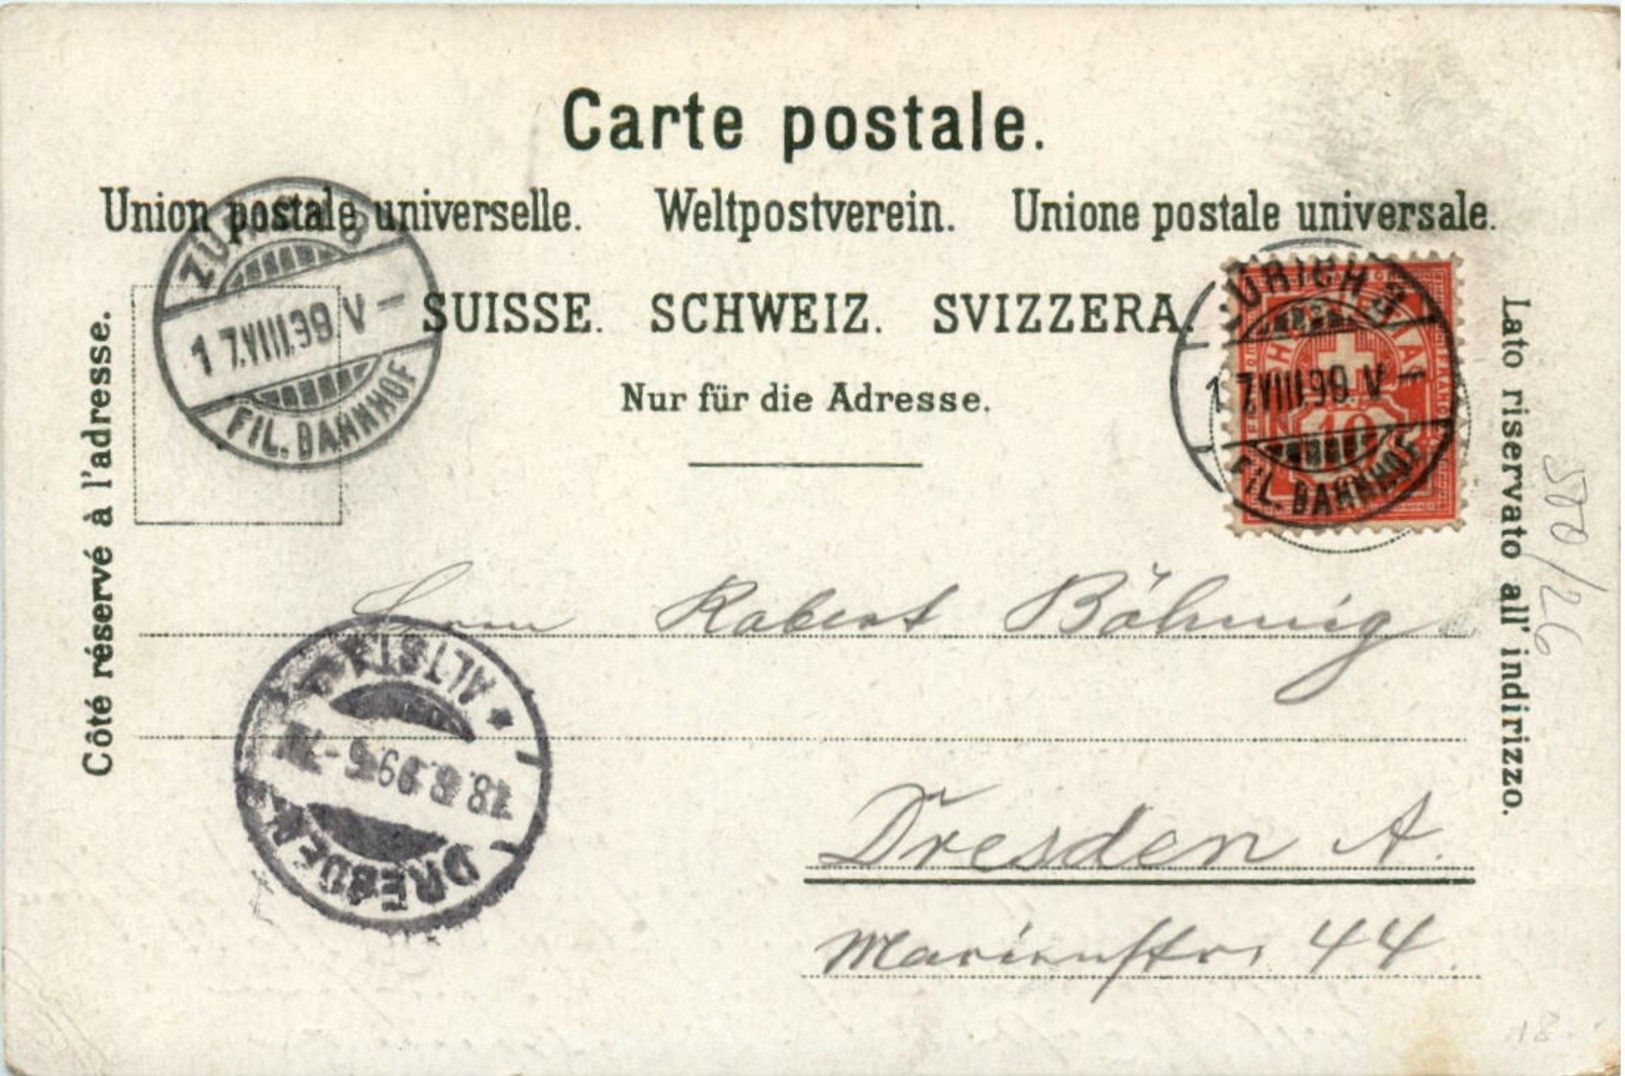 Carte postale.
Union postale universelle. Weltpostverein. Unione postale universale.
SUISSE. SCHWEIZ. SVIZZERA.
Nur für die Adresse.
Côté réservé à l'adresse.
Lato riservato all' indirizzo.
ZÜRICH 3
17.VIII.99 V-
FIL. BAHNHOF
ZÜRICH 3
17.VIII.99 V-
FIL. BAHNHOF
10
Herrn Robert Böhmig
Dresden A.
Marienstr. 44.
DRESDEN
ALTST.
18.8.99
500/26
18